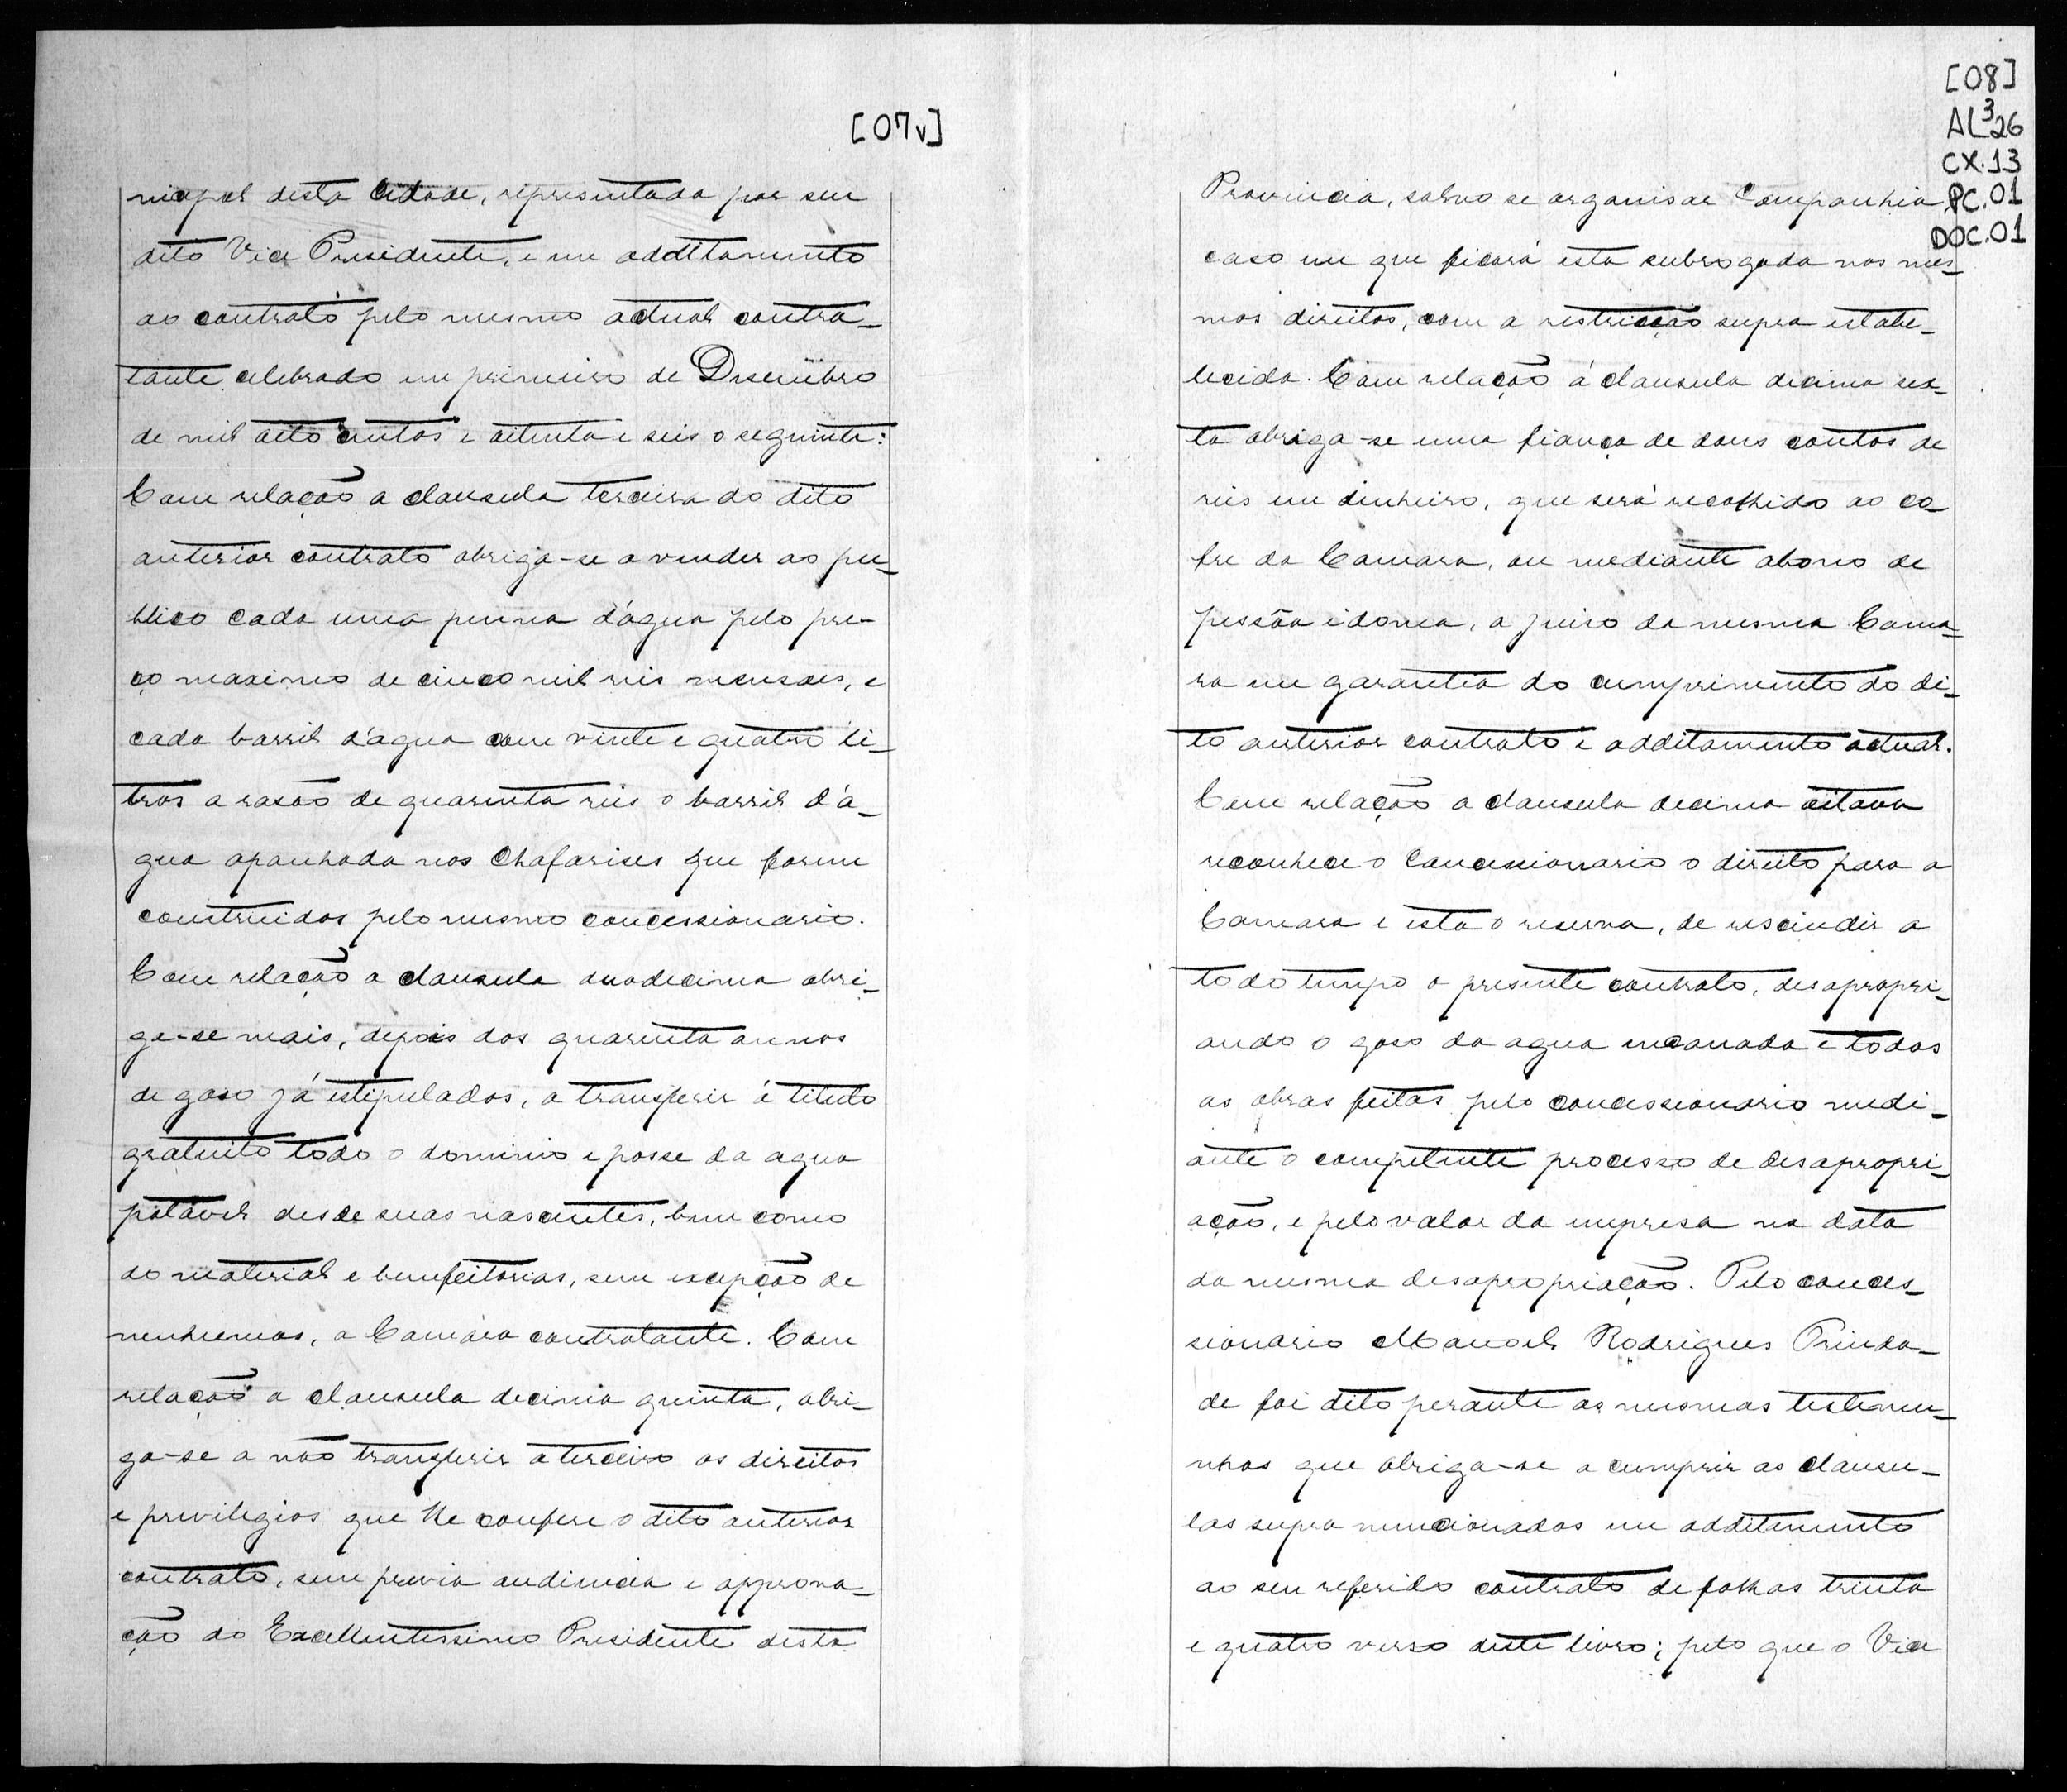 [07v]
nicipal desta Cidade, representada por seu
dito Vice Presidente, e em additamento
ao contrato pelo mesmo actual contra-
tante, celebrado em primeiro de Desembro
de mil oito centos e oitenta e seis o seguinte:
Com relação a clausula terceira do dito
anterior contrato obriga-se a vender ao pu-
blico cada uma penna d'água pelo pre-
ço maximo de cinco mil reis mensaes, e
cada barril d'agua com vinte e quatro li-
tros a rasão de quarenta reis o barril d'a-
gua apanhada nos Chafarises que forem
construidos pelo mesmo concessionario.
Com relação a clausula duodecima obri-
ga-se mais, depois dos quarenta annos
de goso já estipulados, a transferir á titulo
gratuito todo o dominio e posse da agua
potavel desde suas nascentes, bem como
do material e bemfeitorias, sem excepção de
nenhumas, a Camara contratante. Com
relação a clausula decima quinta, obri-
ga-se a não transferir a terceiro os direitos
e previlegios que lhe confere o dito anterior
contrato, sem previa audiencia e approva-
ção do Excellentissimo Presidente desta
[08]
AL³26
CX.13
PC.01
DOC.01
Provincia, salvo se organisar Companhia,
caso em que ficará esta subrogada nos mes-
mos direitos, com a restricção supra estabe-
lecida. Com relação á clausula decima sex-
ta obriga-se uma fiança de dous contos de
reis em dinheiro, que será recolhido ao co-
fre da Camara, ou mediante abono de
pessôa idonea, a juiso da mesma Cama-
ra em garantia do cumprimento do di-
to anterior contrato e additamento actual.
Com relação a clausula decima oitava
reconhece o Concessionario o direito para a
Camara e esta o reserva, de rescindir a
todo tempo o presente contrato, desapropri-
ando o goso da agua encanada e todas
as obras feitas pelo concessionario medi-
ante o competente processo de desapropri-
ação, e pelo valor da empresa na data
da mesma desapropriação. Pelo conces-
sionario Manoel Rodrigues Trinda-
de foi dito perante as mesmas testemu-
nhas que obriga-se a cumprir as clausu-
las supra mencionadas em additemento
ao seu referido contrato de folhas trinta
e quatro verso deste livro; pelo que o Vice